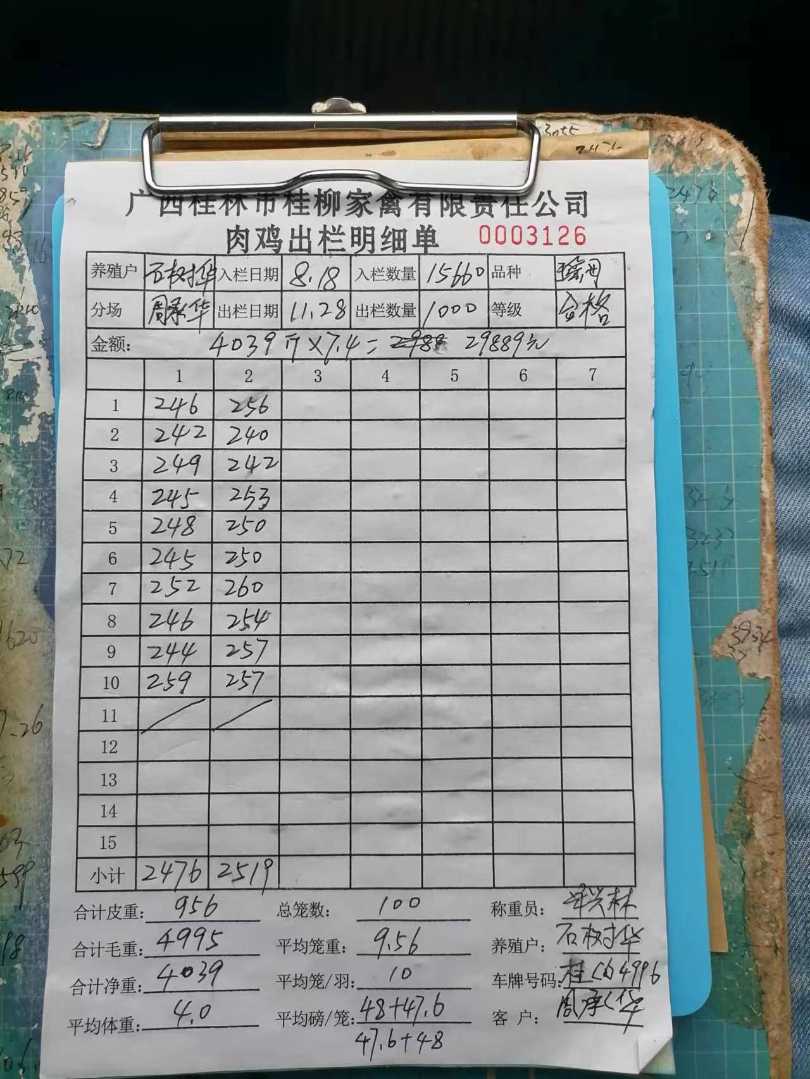 广西桂林市桂柳家禽有限责任公司
肉鸡出栏明细单 0003126
养殖户 石树华 入栏日期 8.18 入栏数量 15660 品种
分场 周承华 出栏日期 11.28 出栏数量 1000 等级 合格
金额: 4039斤×7.4= 29889元
1 2 3 4 5 6 7
1 246 256
2 242 240
3 249 242
4 245 253
5 248 250
6 245 250
7 252 260
8 246 254
9 244 257
10 259 257
11
12
13
14
15
小计 2476 2519
合计皮重: 956 总笼数: 100 称重员:
合计毛重: 4995 平均笼重: 9.56 养殖户: 石树华
合计净重: 4039 平均笼/羽: 10 车牌号码: 桂
平均体重: 4.0 平均磅/笼: 48+47.6 客户: 周承华
47.6+48